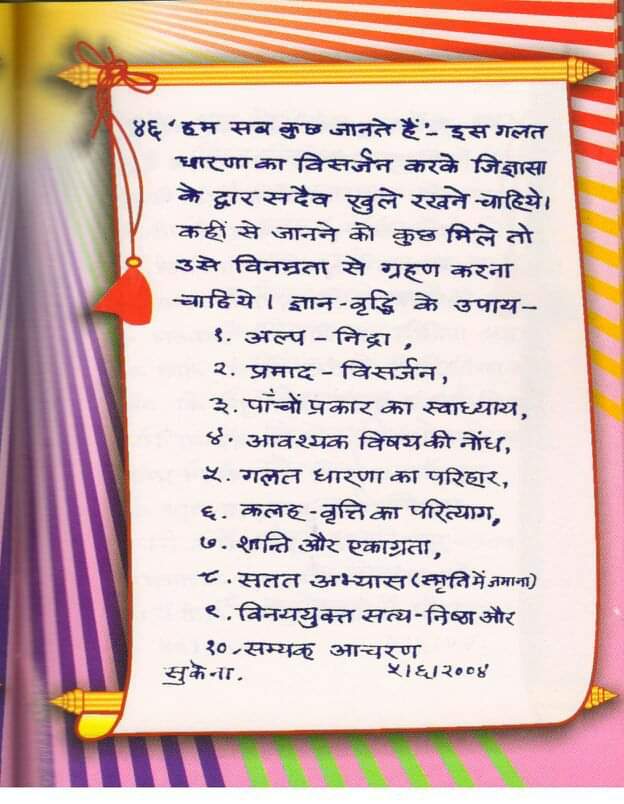 ४६ 'हम सब कुछ जानते हैं'- इस गलत
धारणा का विसर्जन करके जिज्ञासा
के द्वार सदैव खुले रखने चाहिये।
कहीं से जानने को कुछ मिले तो
उसे विनम्रता से ग्रहण करना
चाहिये। ज्ञान-वृद्धि के उपाय-
१. अल्प-निद्रा,
२. प्रमाद-विसर्जन,
३. पाँचों प्रकार का स्वाध्याय,
४. आवश्यक विषय की नोंध,
५. गलत धारणा का परिहार,
६. कलह-वृत्ति का परित्याग,
७. शान्ति और एकाग्रता,
८. सतत अभ्यास (स्मृति में जमाना)
९. विनययुक्त सत्य-निष्ठा और
१०. सम्यक् आचरण
सुकेना. ५/६/२००४